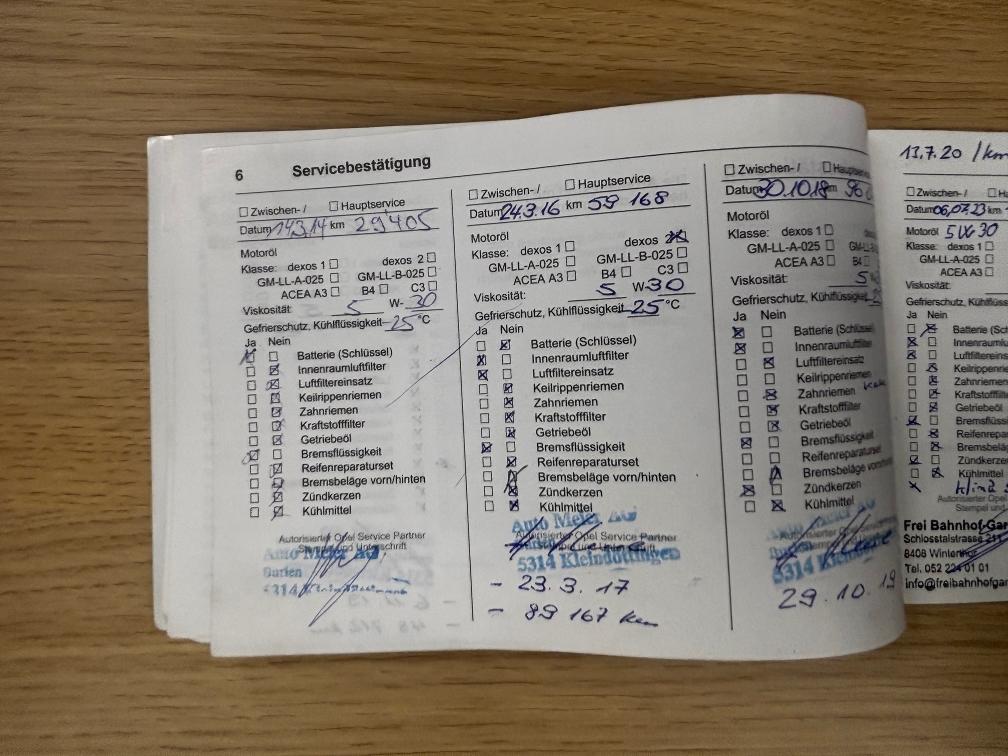 6 Servicebestätigung
Zwischen-/ Hauptservice
Datum 14.3.14 km 29405
Motoröl
Klasse: dexos 1 dexos 2
GM-LL-A-025 GM-LL-B-025
ACEA A3 B4 C3
Viskosität: 5 W-30
Gefrierschutz, Kühlflüssigkeit -25 °C
Ja Nein
Batterie (Schlüssel)
Innenraumluftfilter
Luftfiltereinsatz
Keilrippenriemen
Zahnriemen
Kraftstofffilter
Getriebeöl
Bremsflüssigkeit
Reifenreparaturset
Bremsbeläge vorn/hinten
Zündkerzen
Kühlmittel
Autorisierter Opel Service Partner
Stempel und Unterschrift
Auto Meier AG
Zwischen-/ Hauptservice
Datum 24.3.16 km 59 168
Motoröl
Klasse: dexos 1 dexos 2
GM-LL-A-025 GM-LL-B-025
ACEA A3 B4 C3
Viskosität: 5 W-30
Gefrierschutz, Kühlflüssigkeit -25 °C
Ja Nein
Batterie (Schlüssel)
Innenraumluftfilter
Luftfiltereinsatz
Keilrippenriemen
Zahnriemen
Kraftstofffilter
Getriebeöl
Bremsflüssigkeit
Reifenreparaturset
Bremsbeläge vorn/hinten
Zündkerzen
Kühlmittel
Auto Meier AG
Autorisierter Opel Service Partner
5314 Kleindöttingen
- 23.3.17
- 89 167 km
Zwischen-/
Datum 30.10.18 km 96
Motoröl
Klasse: dexos 1
GM-LL-A-025
ACEA A3 B4
Viskosität: 5
Gefrierschutz, Kühlflüssigkeit
Ja Nein
Batterie (Schlüssel)
Innenraumluftfilter
Luftfiltereinsatz
Keilrippenriemen
Zahnriemen
Kraftstofffilter
Getriebeöl
Bremsflüssigkeit
Reifenreparaturset
Bremsbeläge vorn
Zündkerzen
Kühlmittel
5314 Kleindö
29.10.19
13.7.20 /km
Zwischen-/
Datum 06.07.23 km
Motoröl 5W30
Klasse: dexos 1
GM-LL-A-025
ACEA A3
Viskosität:
Gefrierschutz, Kühlflüssi
Ja Nein
Batterie (Sch
Innenraumlu
Luftfiltereins
Keilrippenrie
Zahnriemen
Kraftstofffilte
Getriebeöl
Bremsflüssig
Reifenrepara
Bremsbeläge
Zündkerzen
Kühlmittel
Klima
Autorisierter Opel
Stempel und
Frei Bahnhof-Gar
Schlosstalstrasse 211
8408 Winterthur
Tel. 052 224 01 01
info@freibahnhofgar